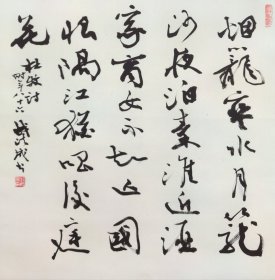 烟籠寒水月籠
沙夜泊秦淮近酒
家商女不知亡國
恨隔江猶唱後庭
花
杜牧詩
时年八十六
书